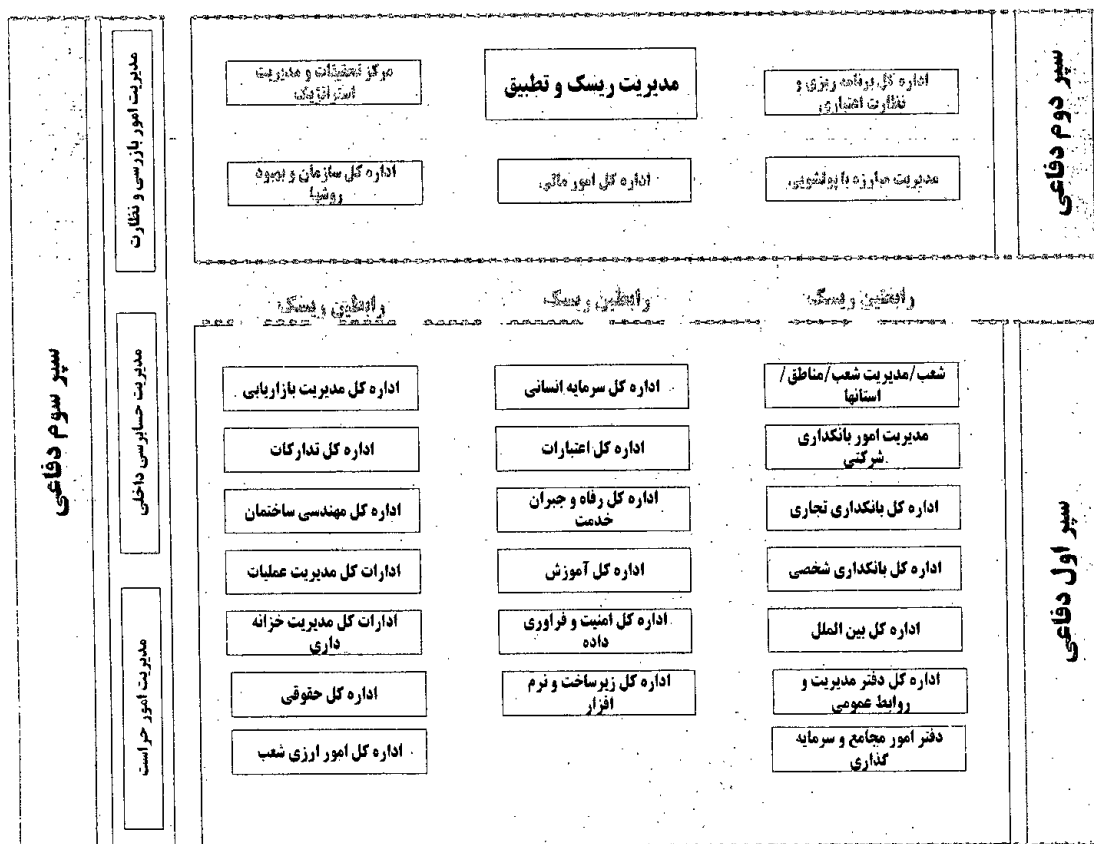 سپر دوم دفاعی
اداره کل برنامه ریزی و
نظارت اعتباری
مدیریت ریسک و تطبیق
مرکز تحقیقات و مدیریت
استراتژیک
مدیریت مبارزه با پولشویی
اداره کل امور مالی
اداره کل سازمان و بهبود
روشها
رابطین ریسک
رابطین ریسک
رابطین ریسک
سپر اول دفاعی
شعب/مدیریت شعب/مناطق/
استانها
مدیریت امور بانکداری
شرکتی
اداره کل بانکداری تجاری
اداره کل بانکداری شخصی
اداره کل بین الملل
اداره کل دفتر مدیریت و
روابط عمومی
دفتر امور مجامع و سرمایه
گذاری
اداره کل سرمایه انسانی
اداره کل اعتبارات
اداره کل رفاه و جبران
خدمت
اداره کل آموزش
اداره کل امنیت و فراوری
داده
اداره کل زیرساخت و نرم
افزار
اداره کل مدیریت بازاریابی
اداره کل تدارکات
اداره کل مهندسی ساختمان
ادارات کل مدیریت عملیات
ادارات کل مدیریت خزانه
داری
اداره کل حقوقی
اداره کل امور ارزی شعب
مدیریت امور بازرسی و نظارت
مدیریت حسابرسی داخلی
مدیریت امور حراست
سپر سوم دفاعی